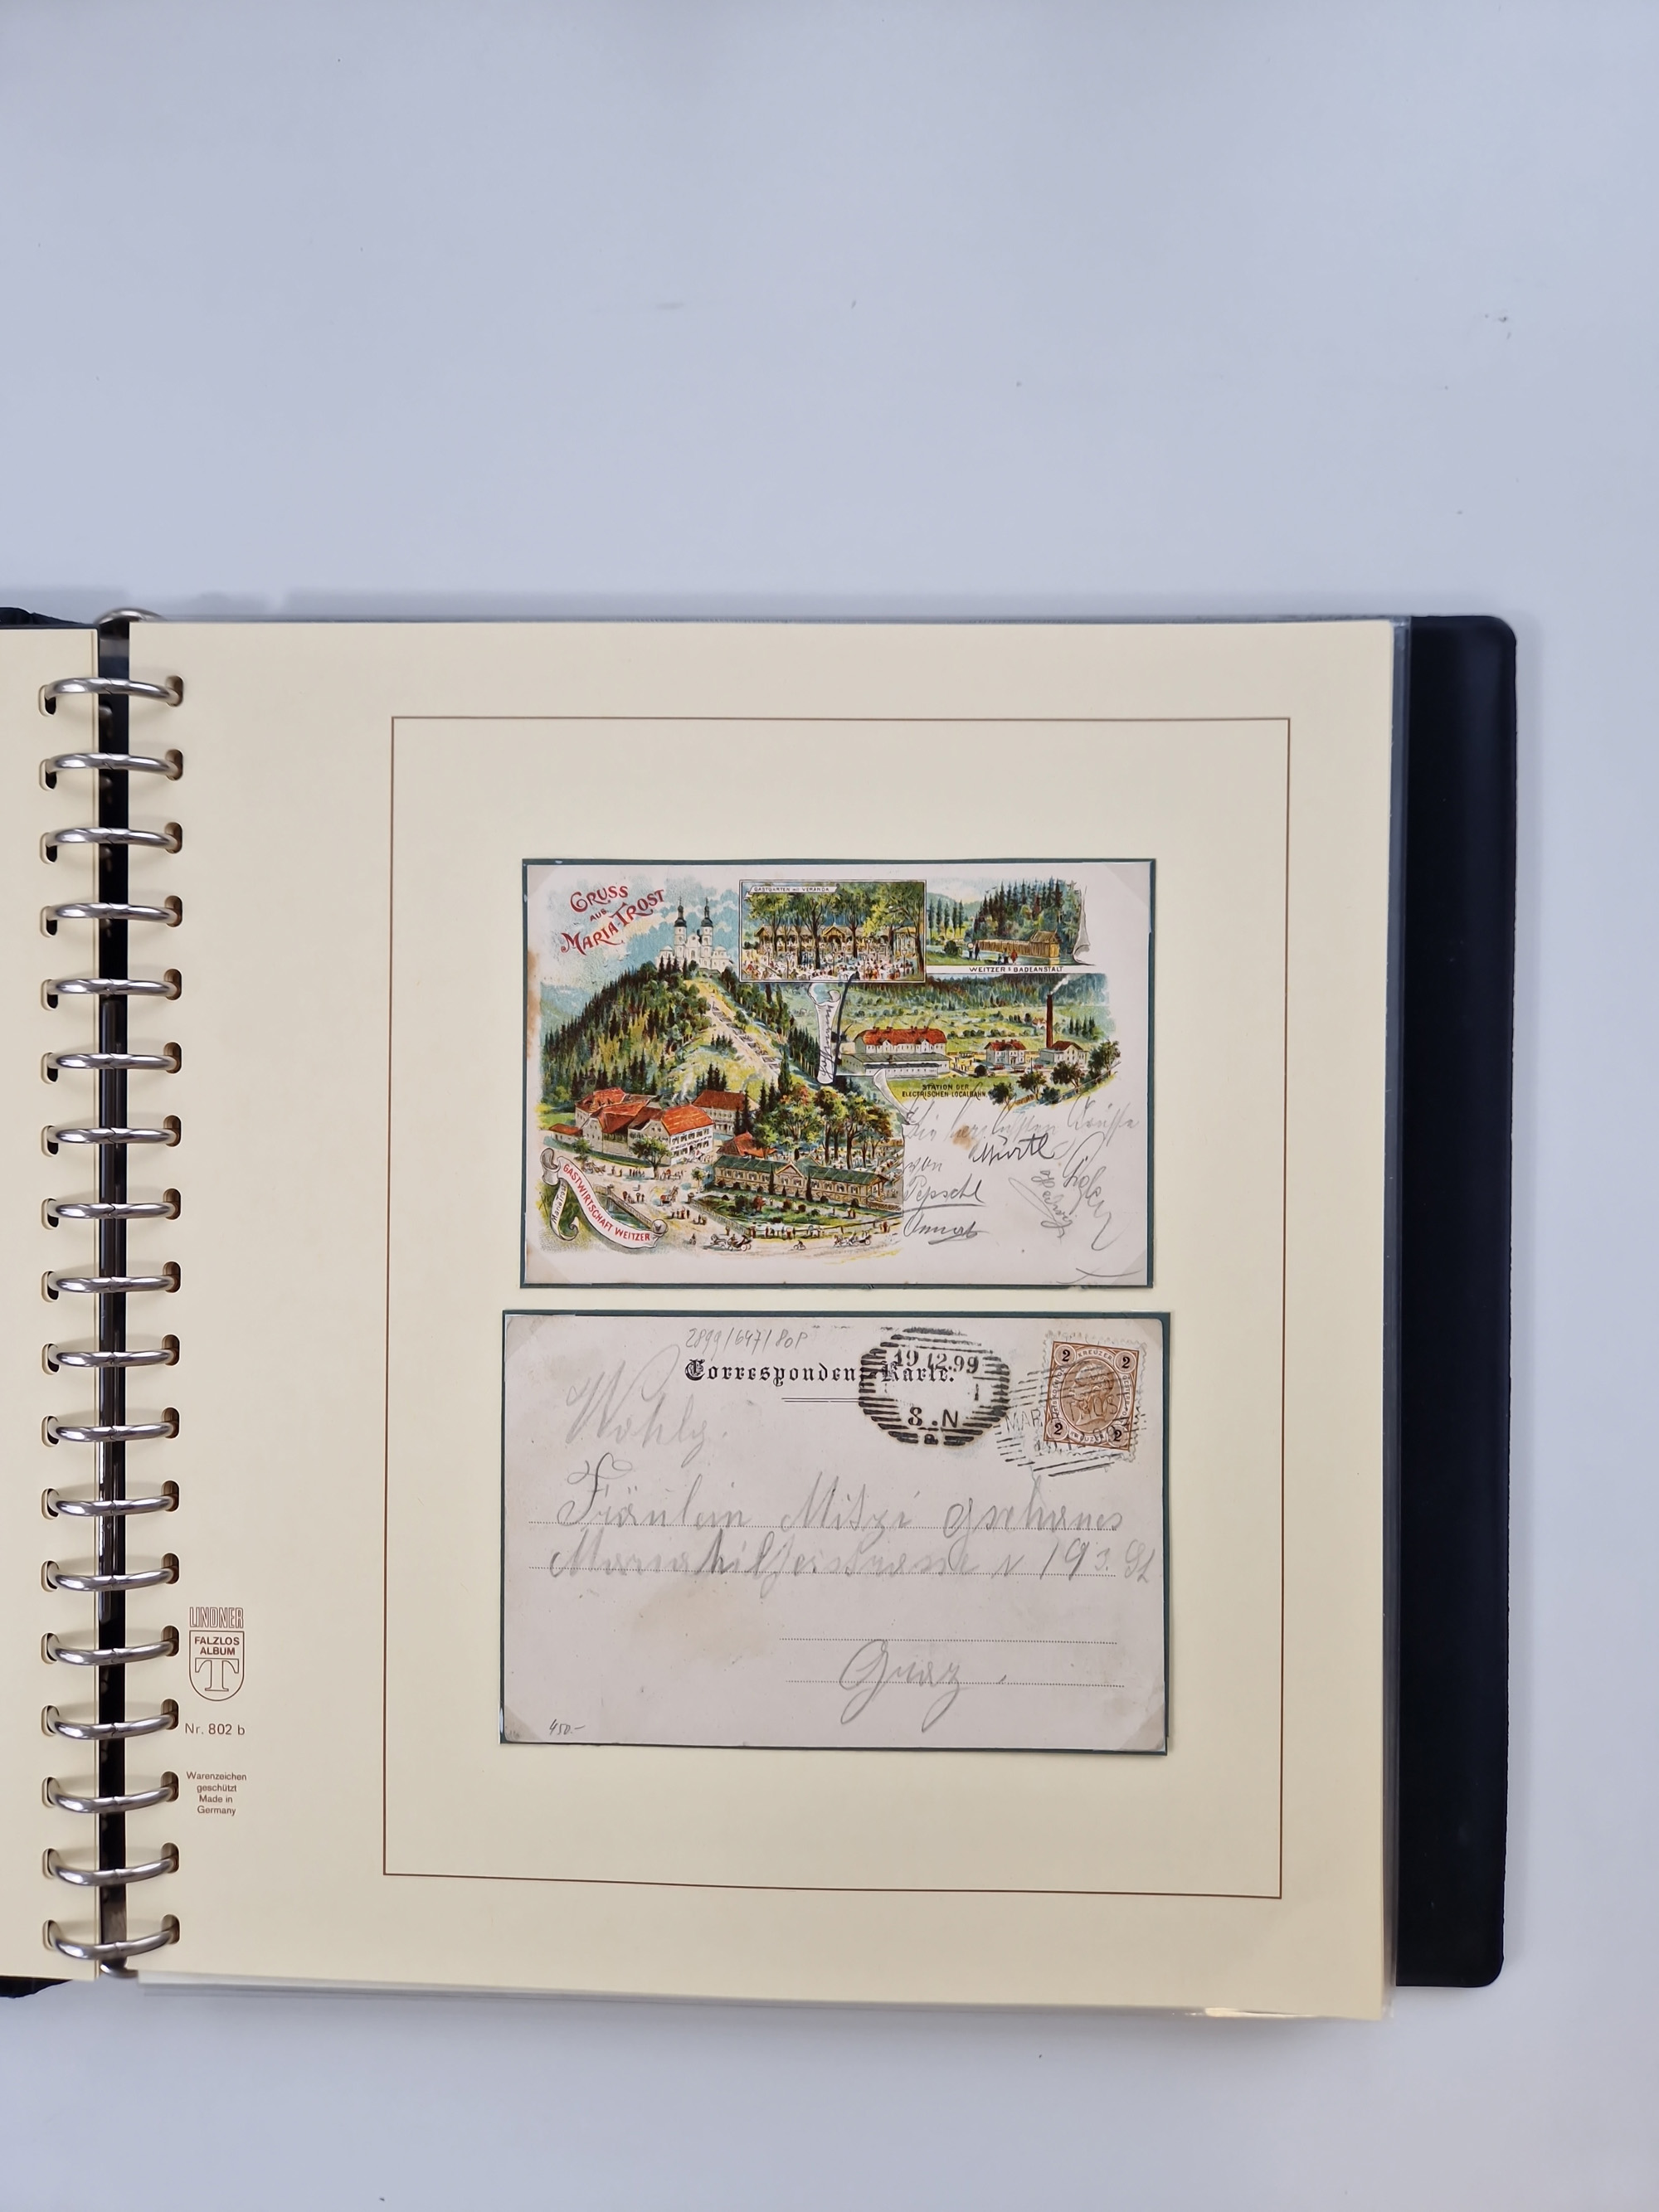 GRUSS
AUS
MARIA-TROST
GASTGARTEN MIT VERANDA
WEITZER'S BADEANSTALT
STATION DER
ELECTRISCHEN LOCALBAHN
GASTWIRTSCHAFT WEITZER
Maria Trost
Die herzlichsten Grüsse
von
Pepschl
Hedwig
2899/647/80P
Correspondenz-Karte.
19.12.99
8.N
a
2 KREUZER 2
2 2
MARIA TROST
Wohlg.
Fräulein Mitzi Gschanes
Mariahilferstrasse N 19 3. St
Graz.
450.-
LINDNER
FALZLOS
ALBUM
T
Nr. 802 b
Warenzeichen
geschützt
Made in
Germany